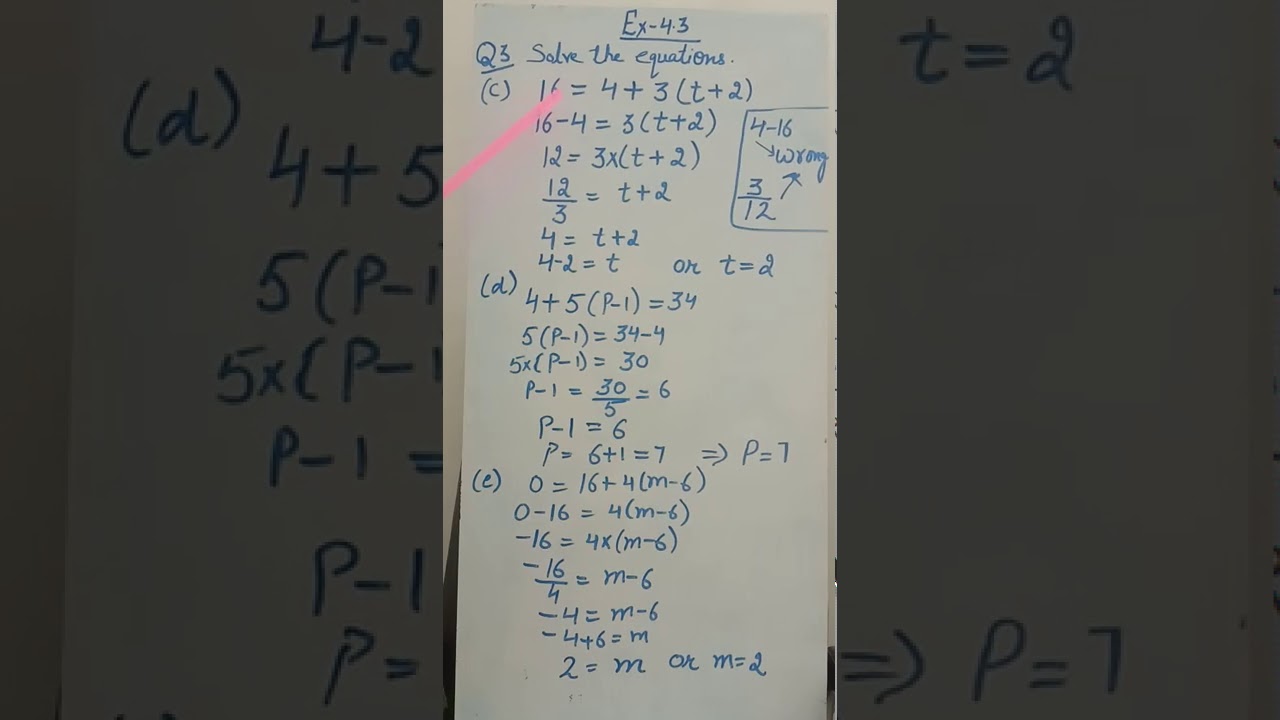 Ex-4.3
Q3 Solve the equations.
(c) 16 = 4 + 3 (t+2)
16-4 = 3(t+2)
12 = 3x(t+2)
12/3 = t+2
4 = t+2
4-2 = t or t=2
4-16
wrong
3/12
(d) 4+5(P-1) = 34
5(P-1) = 34-4
5x(P-1) = 30
P-1 = 30/5 = 6
P-1 = 6
P = 6+1 = 7 ⇒ P=7
(e) 0 = 16+4(m-6)
0-16 = 4(m-6)
-16 = 4x(m-6)
-16/4 = m-6
-4 = m-6
-4+6 = m
2 = m or m=2